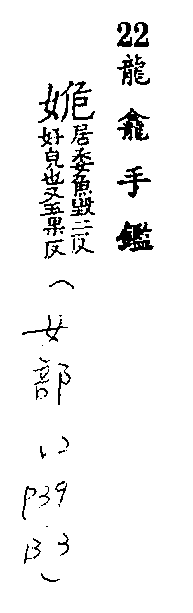 22龍龕手鑑
姽居委魚毀二反
好皃也又五果反
(女部
P39
B3)